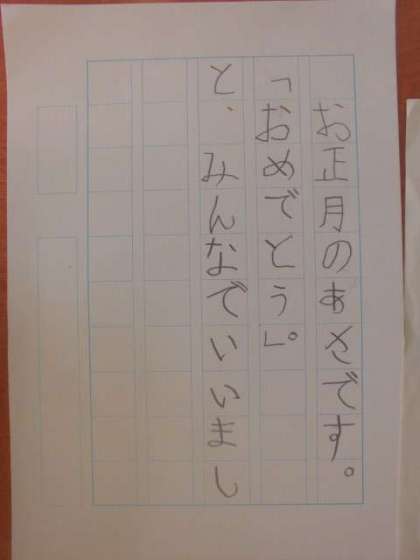 お正月のあさです。
「おめでとう」。
と、みんなでいいまし